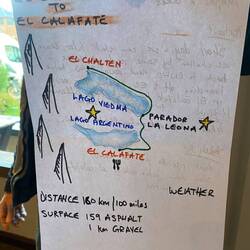 TO
EL CALAFATE
EL CHALTEN
LAGO VIEDMA
PARADOR
LA LEONA
LAGO ARGENTINO
EL CALAFATE
WEATHER
DISTANCE 180 km/100 miles
SURFACE 159 ASPHALT
1 km GRAVEL